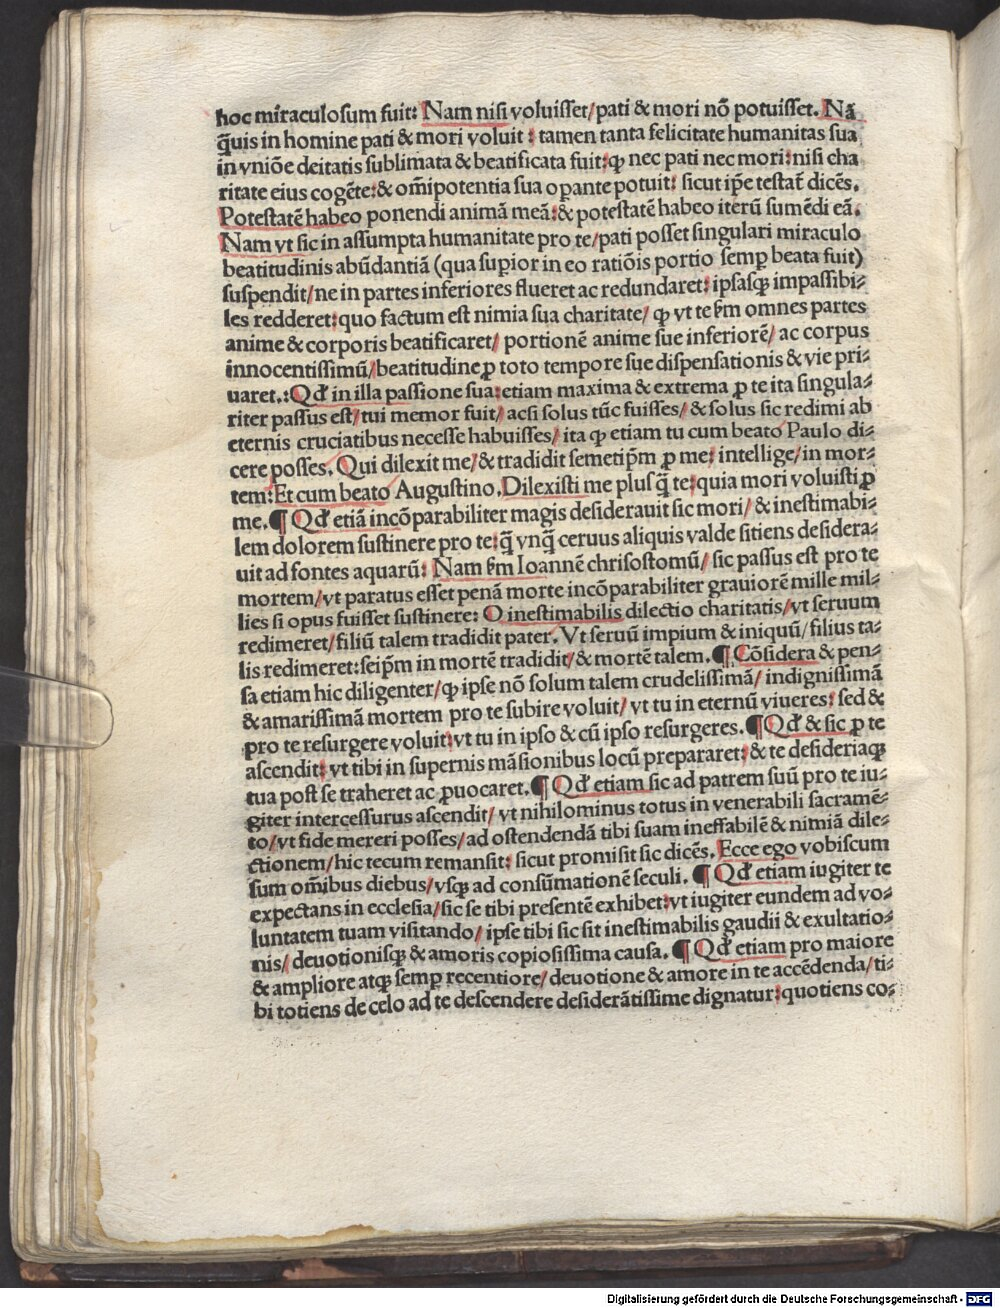 hoc miraculosum fuit: Nam nisi voluisset/pati & mori nō potuisset. Nā
q̄uis in homine pati & mori voluit : tamen tanta felicitate humanitas sua
in vniōe deitatis sublimata & beatificata fuit:ꝙ nec pati nec mori:nisi cha
ritate eius cogēte:& om̄ipotentia sua oꝑante potuit: sicut ip̄e testat̄ dicēs.
Potestatē habeo ponendi animā meā:& potestatē habeo iterū sumēdi eā.
Nam vt sic in assumpta humanitate pro te/pati posset singulari miraculo
beatitudinis abūdantiā (qua supior in eo ratiōis portio semꝑ beata fuit)
suspendit/ne in partes inferiores flueret ac redundaret: ipsasqꝫ impassibi⸗
les redderet:quo factum est nimia sua charitate/ ꝙ vt te s̄m omnes partes
anime & corporis beatificaret/ portionē anime sue inferiorē/ ac corpus
innocentissimū/beatitudine ꝑ toto tempore sue dispensationis & vie pri⸗
uaret.:Qđ in illa passione sua:etiam maxima & extrema ꝓ te ita singula⸗
riter passus est/tui memor fuit/ acsi solus tūc fuisses/ & solus sic redimi ab
eternis cruciatibus necesse habuisses/ ita ꝙ etiam tu cum beato Paulo di⸗
cere posses. Qui dilexit me/& tradidit semetip̄m ꝓ me: intellige/in mor⸗
tem:Et cum beato Augustino.Dilexisti me plusq̄ te:quia mori voluisti ꝓ
me.¶ Qđ etiā incōparabiliter magis desiderauit sic mori/ & inestimabi⸗
lem dolorem sustinere pro te:q̄ vnq̄ ceruus aliquis valde sitiens desidera⸗
uit ad fontes aquarū: Nam s̄m Ioannē chrisostomū/ sic passus est pro te
mortem/vt paratus esset penā morte incōparabiliter grauiorē mille mil⸗
lies si opus fuisset sustinere: O inestimabilis dilectio charitatis/vt seruum
redimeret/filiū talem tradidit pater. Vt seruū impium & iniquū/filius ta⸗
lis redimeret:seip̄m in mortē tradidit/& mortē talem.¶ Cōsidera & pen⸗
sa etiam hic diligenter/ꝙ ipse nō solum talem crudelissimā/ indignissimā
& amarissimā mortem pro te subire voluit/ vt tu in eternū viueres: sed &
pro te resurgere voluit:vt tu in ipso & cū ipso resurgeres. ¶Qđ & sic ꝓ te
ascendit: vt tibi in supernis māsionibus locū prepararet:& te desideriaqꝫ
tua post se traheret ac ꝓuocaret.¶ Qđ etiam sic ad patrem suū pro te iu⸗
giter intercessurus ascendit/ vt nihilominus totus in venerabili sacramē⸗
to/vt fide mereri posses/ad ostendendā tibi suam ineffabilē & nimiā dile⸗
ctionem/hic tecum remansit: sicut promisit sic dicēs. Ecce ego vobiscum
sum om̄ibus diebus/vsqꝫ ad consūmationē seculi. ¶ Qđ etiam iugiter te
expectans in ecclesia/sic se tibi presentē exhibet:vt iugiter eundem ad vo⸗
luntatem tuam visitando/ ipse tibi sic sit inestimabilis gaudii & exultatio⸗
nis/deuotionisqꝫ & amoris copiosissima causa. ¶ Qđ etiam pro maiore
& ampliore atqꝫ semꝑ recentiore/deuotione & amore in te accēdenda/ti⸗
bi totiens de celo ad te descendere desiderātissime dignatur:quotiens co⸗
Digitalisierung gefördert durch die Deutsche Forschungsgemeinschaft - DFG